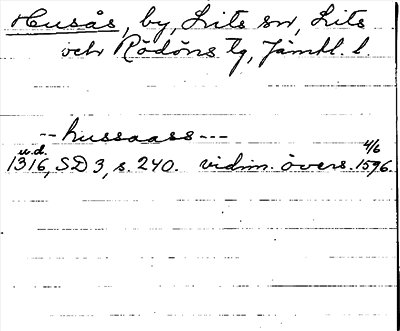 Husås, by, Lits sn, Lits
och Rödöns tg, Jämtl. l.
-- hussaass ---
u.d. 4/6
1316, SD 3, s. 240. vidim. övers. 1596.